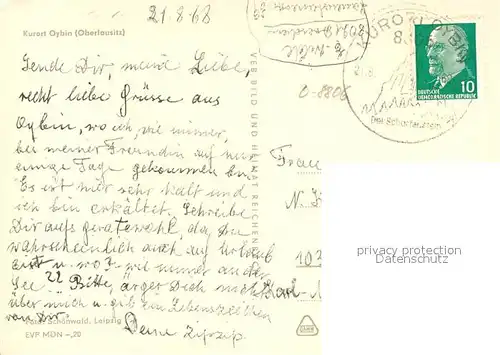 21.8.68
Kurort Oybin (Oberlausitz)
Sende Dir, meine Liebe,
recht liebe Grüsse aus
Oybin, wo ich, wie immer,
bei meiner Freundin auf nur
einige Tage gekommen bin
Es ist hier sehr kalt und
ich bin erkältet. Schreibe
Dir aufs geratewohl, da Du
wahrscheinlich auch auf Urlaub
bist u. wo? wie immer an der
See ?? Bitte, ärger Dich nicht
über mich u. gib ein Lebenszeichen
von Dir.
Deine
Foto: Schönwald, Leipzig
EVP MDN -,20
VEB BILD UND HEIMAT REICHENBACH
0-8806
KURORT OYBIN
DEUTSCHE
DEMOKRATISCHE REPUBLIK
10
Frau
N.
103
Karl-
privacy protection
www.ansichtskarten-center.de